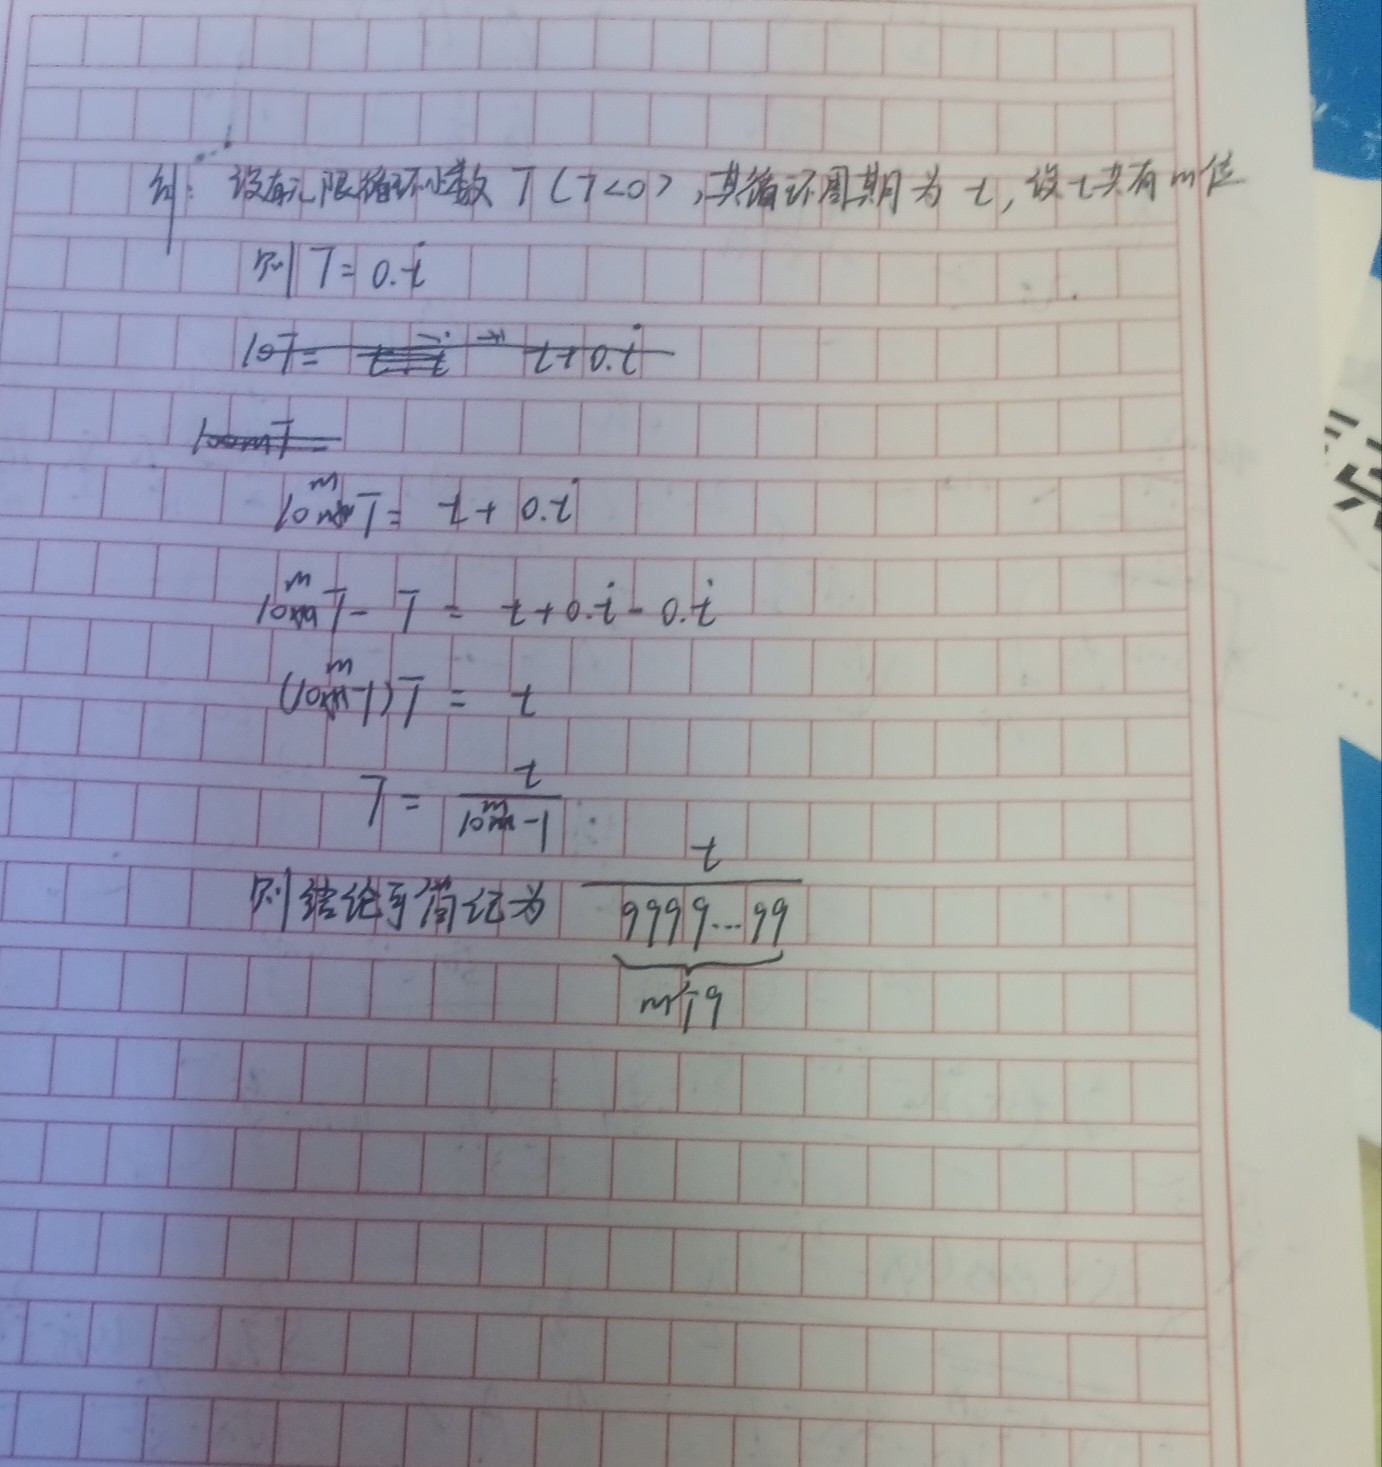 例: 设有无限循环小数 T (T<0), 其循环周期为 t, 设 t 共有 m 位
则 T = 0.ṫ
10T = t + 0.ṫ
100mT =
10^m T = t + 0.ṫ
10^m T - T = t + 0.ṫ - 0.ṫ
(10^m - 1) T = t
T = t / (10^m - 1)
则结论可简记为 t / 9999...99
m个9